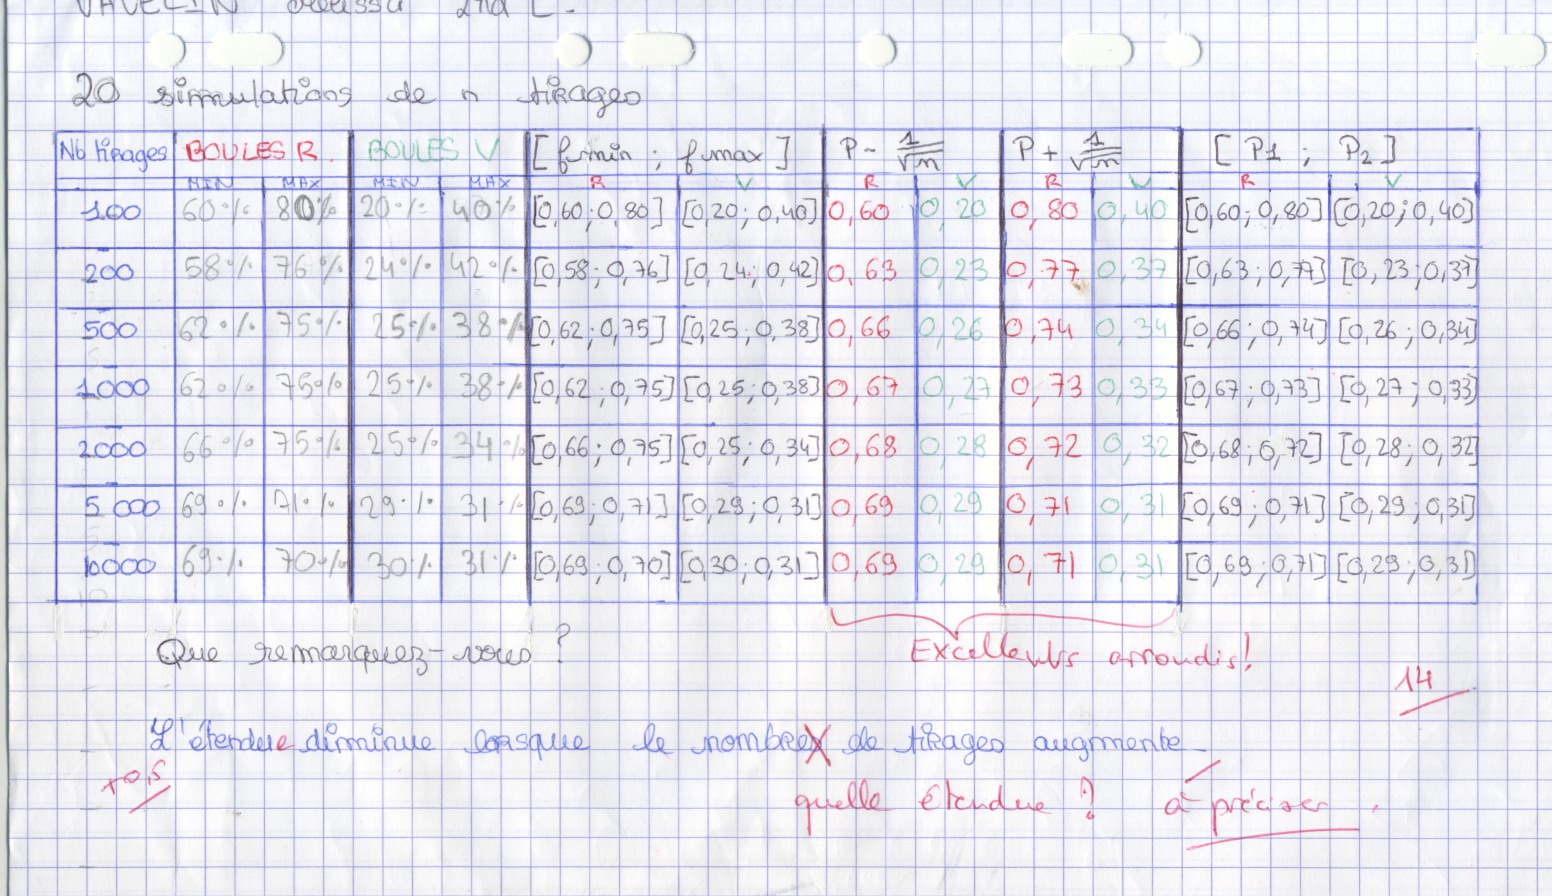 20 simulations de n tirages
Nb tirages BOULES R. BOULES V [fmin ; fmax] P - 1/√n P + 1/√n [P1 ; P2]
MIN MAX MIN MAX R V R V R V R V
100 60% 80% 20% 40% [0,60 ; 0,80] [0,20 ; 0,40] 0,60 0,20 0,80 0,40 [0,60 ; 0,80] [0,20 ; 0,40]
200 58% 76% 24% 42% [0,58 ; 0,76] [0,24 ; 0,42] 0,63 0,23 0,77 0,37 [0,63 ; 0,77] [0,23 ; 0,37]
500 62% 75% 25% 38% [0,62 ; 0,75] [0,25 ; 0,38] 0,66 0,26 0,74 0,34 [0,66 ; 0,74] [0,26 ; 0,34]
1000 62% 75% 25% 38% [0,62 ; 0,75] [0,25 ; 0,38] 0,67 0,27 0,73 0,33 [0,67 ; 0,73] [0,27 ; 0,33]
2000 66% 75% 25% 34% [0,66 ; 0,75] [0,25 ; 0,34] 0,68 0,28 0,72 0,32 [0,68 ; 0,72] [0,28 ; 0,32]
5 000 69% 71% 29% 31% [0,69 ; 0,71] [0,29 ; 0,31] 0,69 0,29 0,71 0,31 [0,69 ; 0,71] [0,29 ; 0,31]
10000 69% 70% 30% 31% [0,69 ; 0,70] [0,30 ; 0,31] 0,69 0,29 0,71 0,31 [0,69 ; 0,71] [0,29 ; 0,31]
Que remarquez-vous ?
Excellents arrondis !
14
L'étendue diminue lorsque le nombre de tirages augmente.
+0,5
quelle étendue ? à préciser.